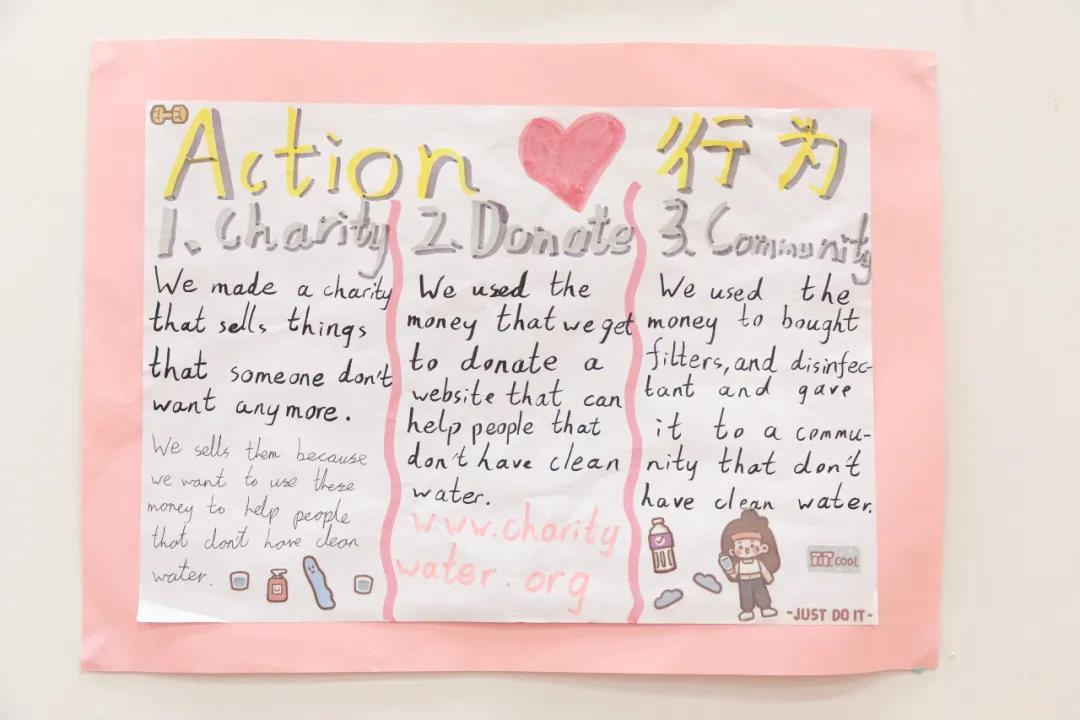 Action 行为
1. Charity
We made a charity
that sells things
that someone don't
want anymore.
We sells them because
we want to use these
money to help people
that dont have clean
water.
2. Donate
We used the
money that we get
to donate a
website that can
help people that
don't have clean
water.
www.charity
water.org
3. Community
We used the
money to bought
filters, and disinfec-
tant and gave
it to a commu-
nity that don't
have clean water.
COOL
-JUST DO IT-